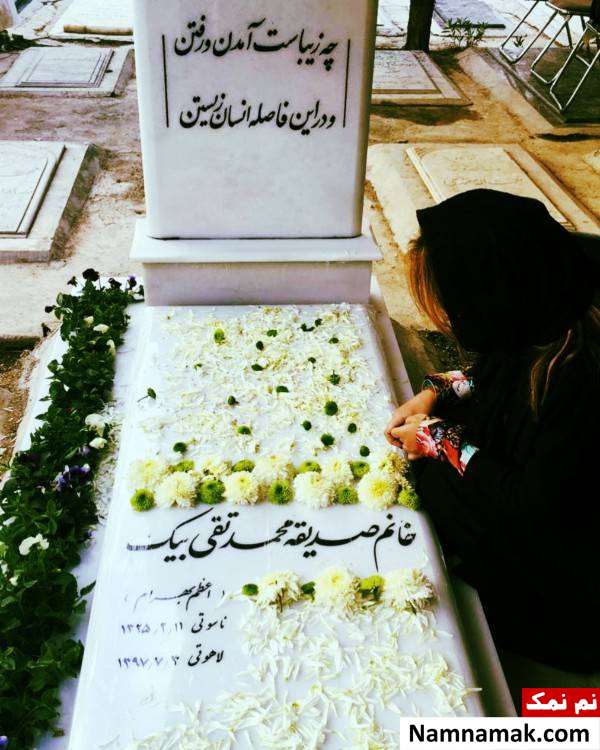 چه زیباست آمدن و رفتن
و در این فاصله انسان زیستن
خانم صدیقه محمد تقی بیک
( اعظم بهرام )
ناسوتی ۱۳۲۵/۲/۱۱
لاهوتی ۱۳۹۷/۷/۳
نم نمک
Namnamak.com